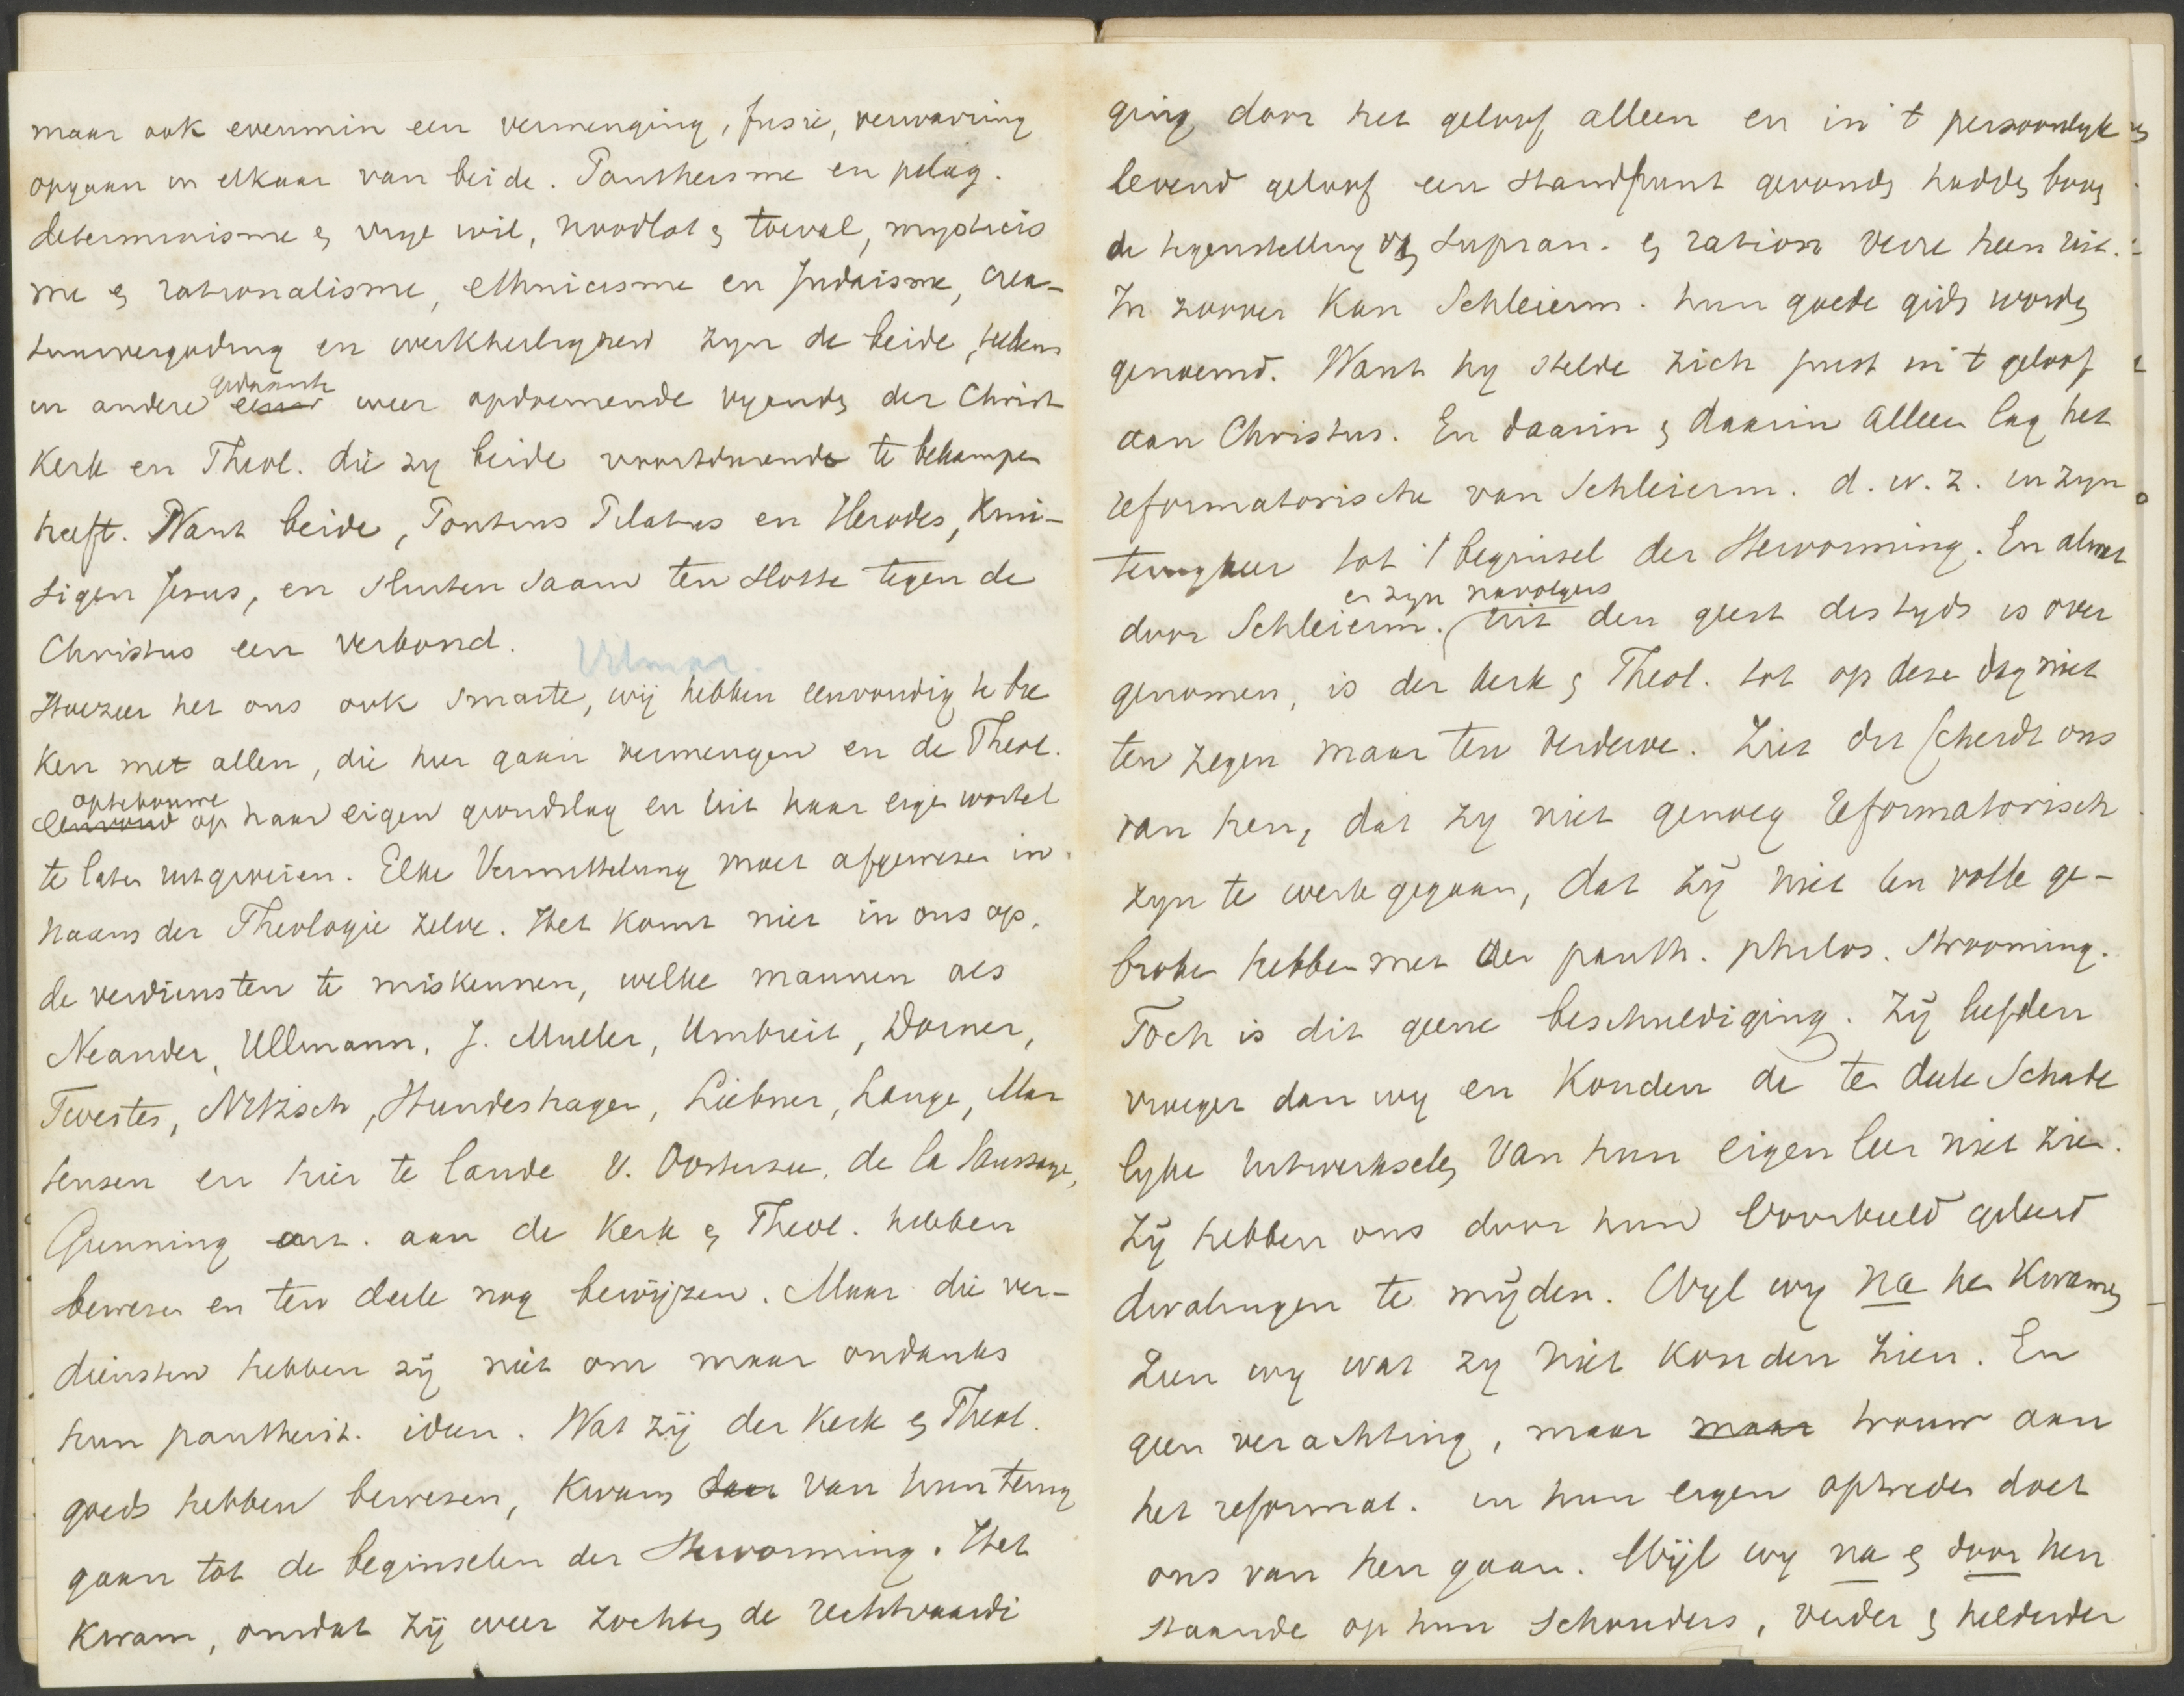 maar ook evenmin een vermenging, fusie, verwarring
opgaan in elkaar van beide. Pantheisme en pelag.
determinisme & vrye wil, noodlot & toeval, mysticis
me & rationalisme, ethnicisme en Judaisme, crea-
tuurvergoding en werkheiligheid zyn de beide, telkens
in andere gedaante weer opdoemende vyanden der Christ
Kerk en Theol. die zy beide voortdurende te bekampen
heeft. Want beide, Pontius Pilatus en Herodes, Krui-
sigen Jesus, en sluiten saam ten slotte tegen de
Christus een verbond.
Vilmar.
Hoezeer het ons ook smarte, wij hebben eenvoudig te bre
ken met allen, die hier gaan vermengen en de Theol.
optebouwe
op haar eigen grondslag en uit haar eigen wortel
te laten uitgroeien. Elke Vermittelung moet afgewezen in
naam der Theologie zelve. Het komt niet in ons op,
de verdiensten te miskennen, welke mannen als
Neander, Ullmann, J. Muller, Umbreit, Dorner,
Twesten, Nitzsch, Hundeshagen, Liebner, Lange, Mar
tensen en hier te lande v. Oosterzee, de la Saussaye,
Gunning aan de Kerk & Theol. hebben
bewezen en ten deele nog bewijzen. Maar die ver-
diensten hebben zij niet om maar ondanks
hun pantheist. ideen. Wat zij der Kerk & Theol.
goeds hebben bewezen, Kwam daar van hun terug
gaan tot de beginselen der Hervorming. Het
Kwam, omdat zij weer zochten de rechtvaardi
ging door het geloof alleen en in 't persoonlyk
levend geloof een standpunt gevonden hadden boven
de tegenstelling van Supran. & ration verre heen uit.
In zoover Kan Schleierm. hun goede gids worden
genoemd. Want hy stelde zich juist in 't geloof
aan Christus. En daarin & daarin alleen lag het
reformatorische van Schleierm. d. w. z. in zyn
terugkeer tot 't beginsel der Hervorming. En alwat
en zyn navolgers
door Schleierm. uit den geest des tyds is over
genomen, is der kerk & Theol. tot op deze dag niet
ten zegen maar ten verderve. Ziet dit scheidt ons
van hen, dat zy niet genoeg reformatorisch
zyn te werk gegaan, dat zij niet ten volle ge-
broken hebben met der panth. philos. strooming.
Toch is dit geene beschuldiging. Zij leefden
vroeger dan wy en Konden de ten deele schade
lyke uitwerkselen van hun eigen leer niet zien.
Zij hebben ons door hun voorbeeld geleerd
dwalingen te mijden. Wyl wy na hen Kwamen
Zien wy wat zy niet konden zien. En
geen verachting, maar maar trouw aan
het reformat. in hun eigen optreden doet
ons van hen gaan. Wijl wy na & door hen
staande op hun schouders, verder & helderder